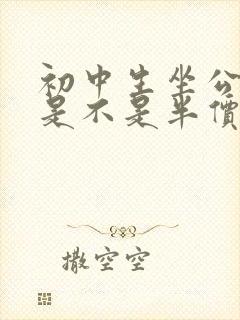 初中生坐公
是不是半價
撒空空